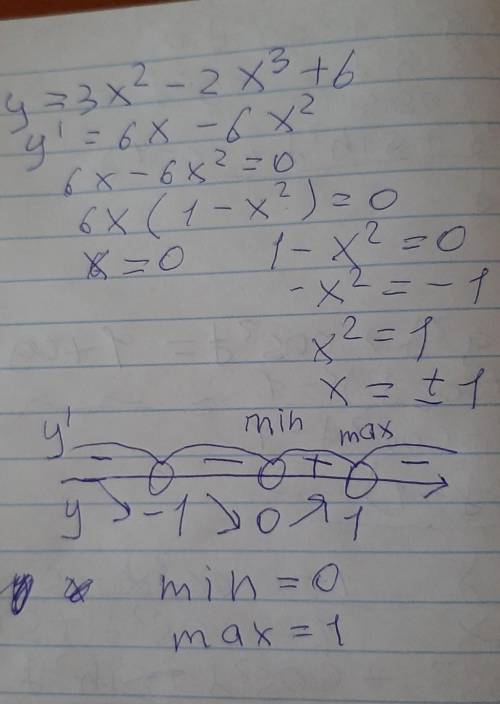 y = 3x² - 2x³ + 6
y' = 6x - 6x²
6x - 6x² = 0
6x(1 - x²) = 0
x = 0 1 - x² = 0
-x² = -1
x² = 1
x = ± 1
y' min max
- - + -
y -1 0 1
x min = 0
max = 1